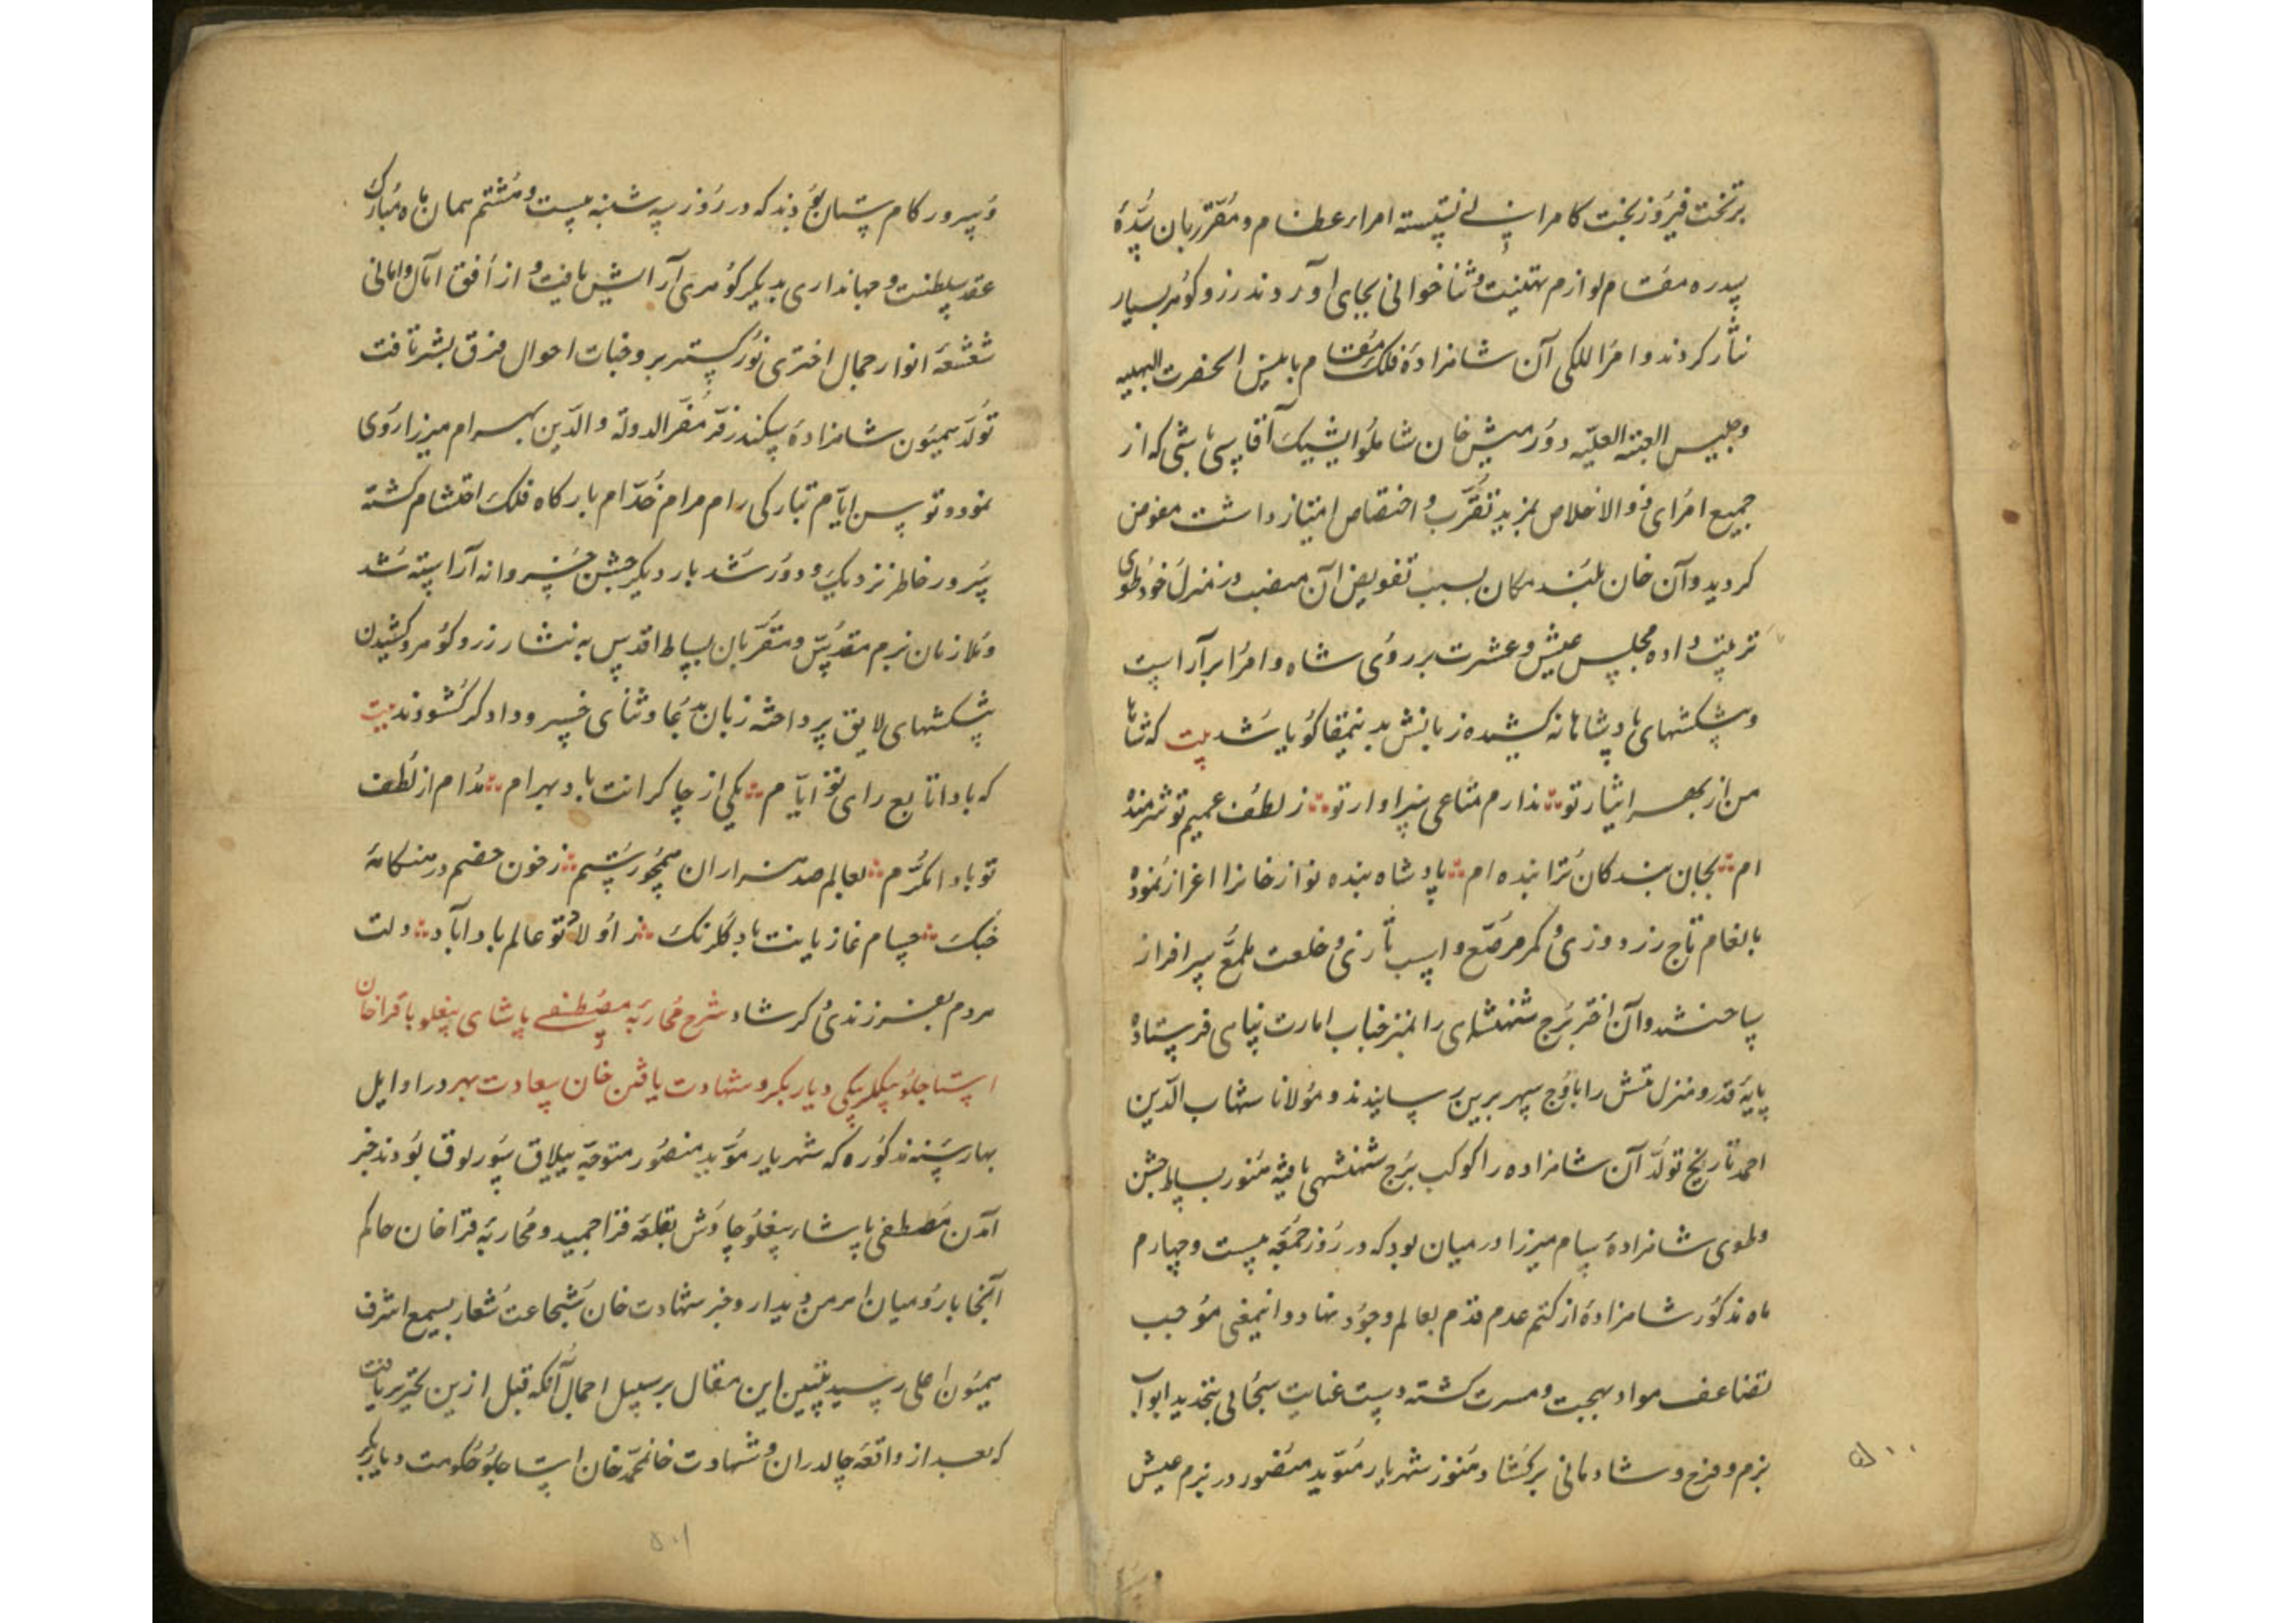 برتخت فیروزبخت کامرانی نشسته امراء عظام و مقرّبان سُدّهٔ
سدره مقام لوازم تهنیت و ثناخوانی بجای آوردند و زر و گوهر بسیار
نثار کردند و امرا للکی آن شاهزادهٔ فلک مقام بانیس الحضرت البهیه
و جلیس العتبة العلیّه دورمیش خان شاملو ایشیک آقاسی باشی که از
جمیع امرای ذوالاخلاص بمزید تقرّب و اختصاص امتیاز داشت مفوض
کردید و آن خان بلند مکان بسبب تفویض آن منصب در منزل خود طوی
ترتیب داده مجلس عیش و عشرت بر روی شاه و امرا برآراست
و پیشکشهای پادشاهانه کشیده زبانش بدینمقا گویا شد بیت که شاها
من از بهر ایثار تو ندارم متاعی سزاوار تو ز لطف عمیم تو شرمنده
ام بجان بندگان ترا بنده ام پادشاه بنده نواز خانرا اعزاز نموده
بانعام تاج زردوزی و کمر مرصّع و اسپ تازی و خلعت ملمّع سرافراز
ساختند و آن اختر برج شهنشاهی را بمنزل جناب امارت پناهی فرستاده
پایهٔ قدر و منزلتش را باوج سپهر برین رسانیدند و مولانا شهاب الدّین
احمد تاریخ تولّد آن شاهزاده را کوکب برج شهنشهی یافته هنوز بساط جشن
و طوی شاهزاده سام میرزا در میان بود که در روز جمعه بیست و چهارم
ماه مذکور شاهزادهٔ از کتم عدم قدم بعالم وجود نهاد و اینمعنی موجب
تضاعف مواد بهجت و مسرت کشته دست عنایت سبحانی بتجدید ابواب
بزم و فرح و شادمانی برکشاد هنوز شهریار مؤید منصور در بزم عیش
۵۰۰
و سرور کام ستان بودند که در روز سه شنبه بیست و هشتم همان ماه مبارک
عقد سلطنت و جهانداری بدیکر گوهری آرایش یافت و از افق آمال و امانی
شعشعهٔ انوار جمال اختری نورگستر بر وجنات احوال فرق بشر تافت
تولّد همیون شاهزادهٔ سکندر فرّ مفخّر الدولة والدّین بهرام میرزا روی
نمود و توسن ایّام تبارکی رام مرام خدّام بارگاه فلک احتشام گشته
سرور خاطر نزدیک و دور شد بار دیگر جشن خسروانه آراسته شد
و ملازمان بزم مقدّس و مقرّبان بساط اقدس به نثار زر و گوهر و کشیدن
پیشکشهای لایق پرداخته زبان بدعا و ثنای خسرو دادگر گشودند بیت
که بادا تابع رای تو ایّام یکی از چاکرانت باد بهرام مدام از لطف
تو بادا مکرّم بعالم صد هزاران همچو رستم ز خون خصم در هنگامهٔ
جنگ حسام غازیانت باد گلرنگ ز اولاد تو عالم باد آباد دلت
مردم بفرزندی گر شاد شرح محاربه مصطفی پاشای بیغلو با قراخان
استاجلو بیکلربیکی دیاربکر و شهادت یافتن خان سعادت بهر در اوایل
بهار سنه مذکوره که شهریار مؤید منصور متوجّه ییلاق سورلوق بودند خبر
آمدن مصطفی پاشاء بیغلو چاوش بقلعه قراحمید و محاربه قراخان حاکم
آنجا با رومیان اهرمن دیدار و خبر شهادت خان شجاعت شعار بسمع اشرف
همیون اعلی رسید تبیین این مقال برسبیل اجمال آنکه قبل ازین تحریر یافت
که بعد از واقعه چالدران و شهادت خان محمّد خان استاجلو حکومت دیاربکر
۵۰۱